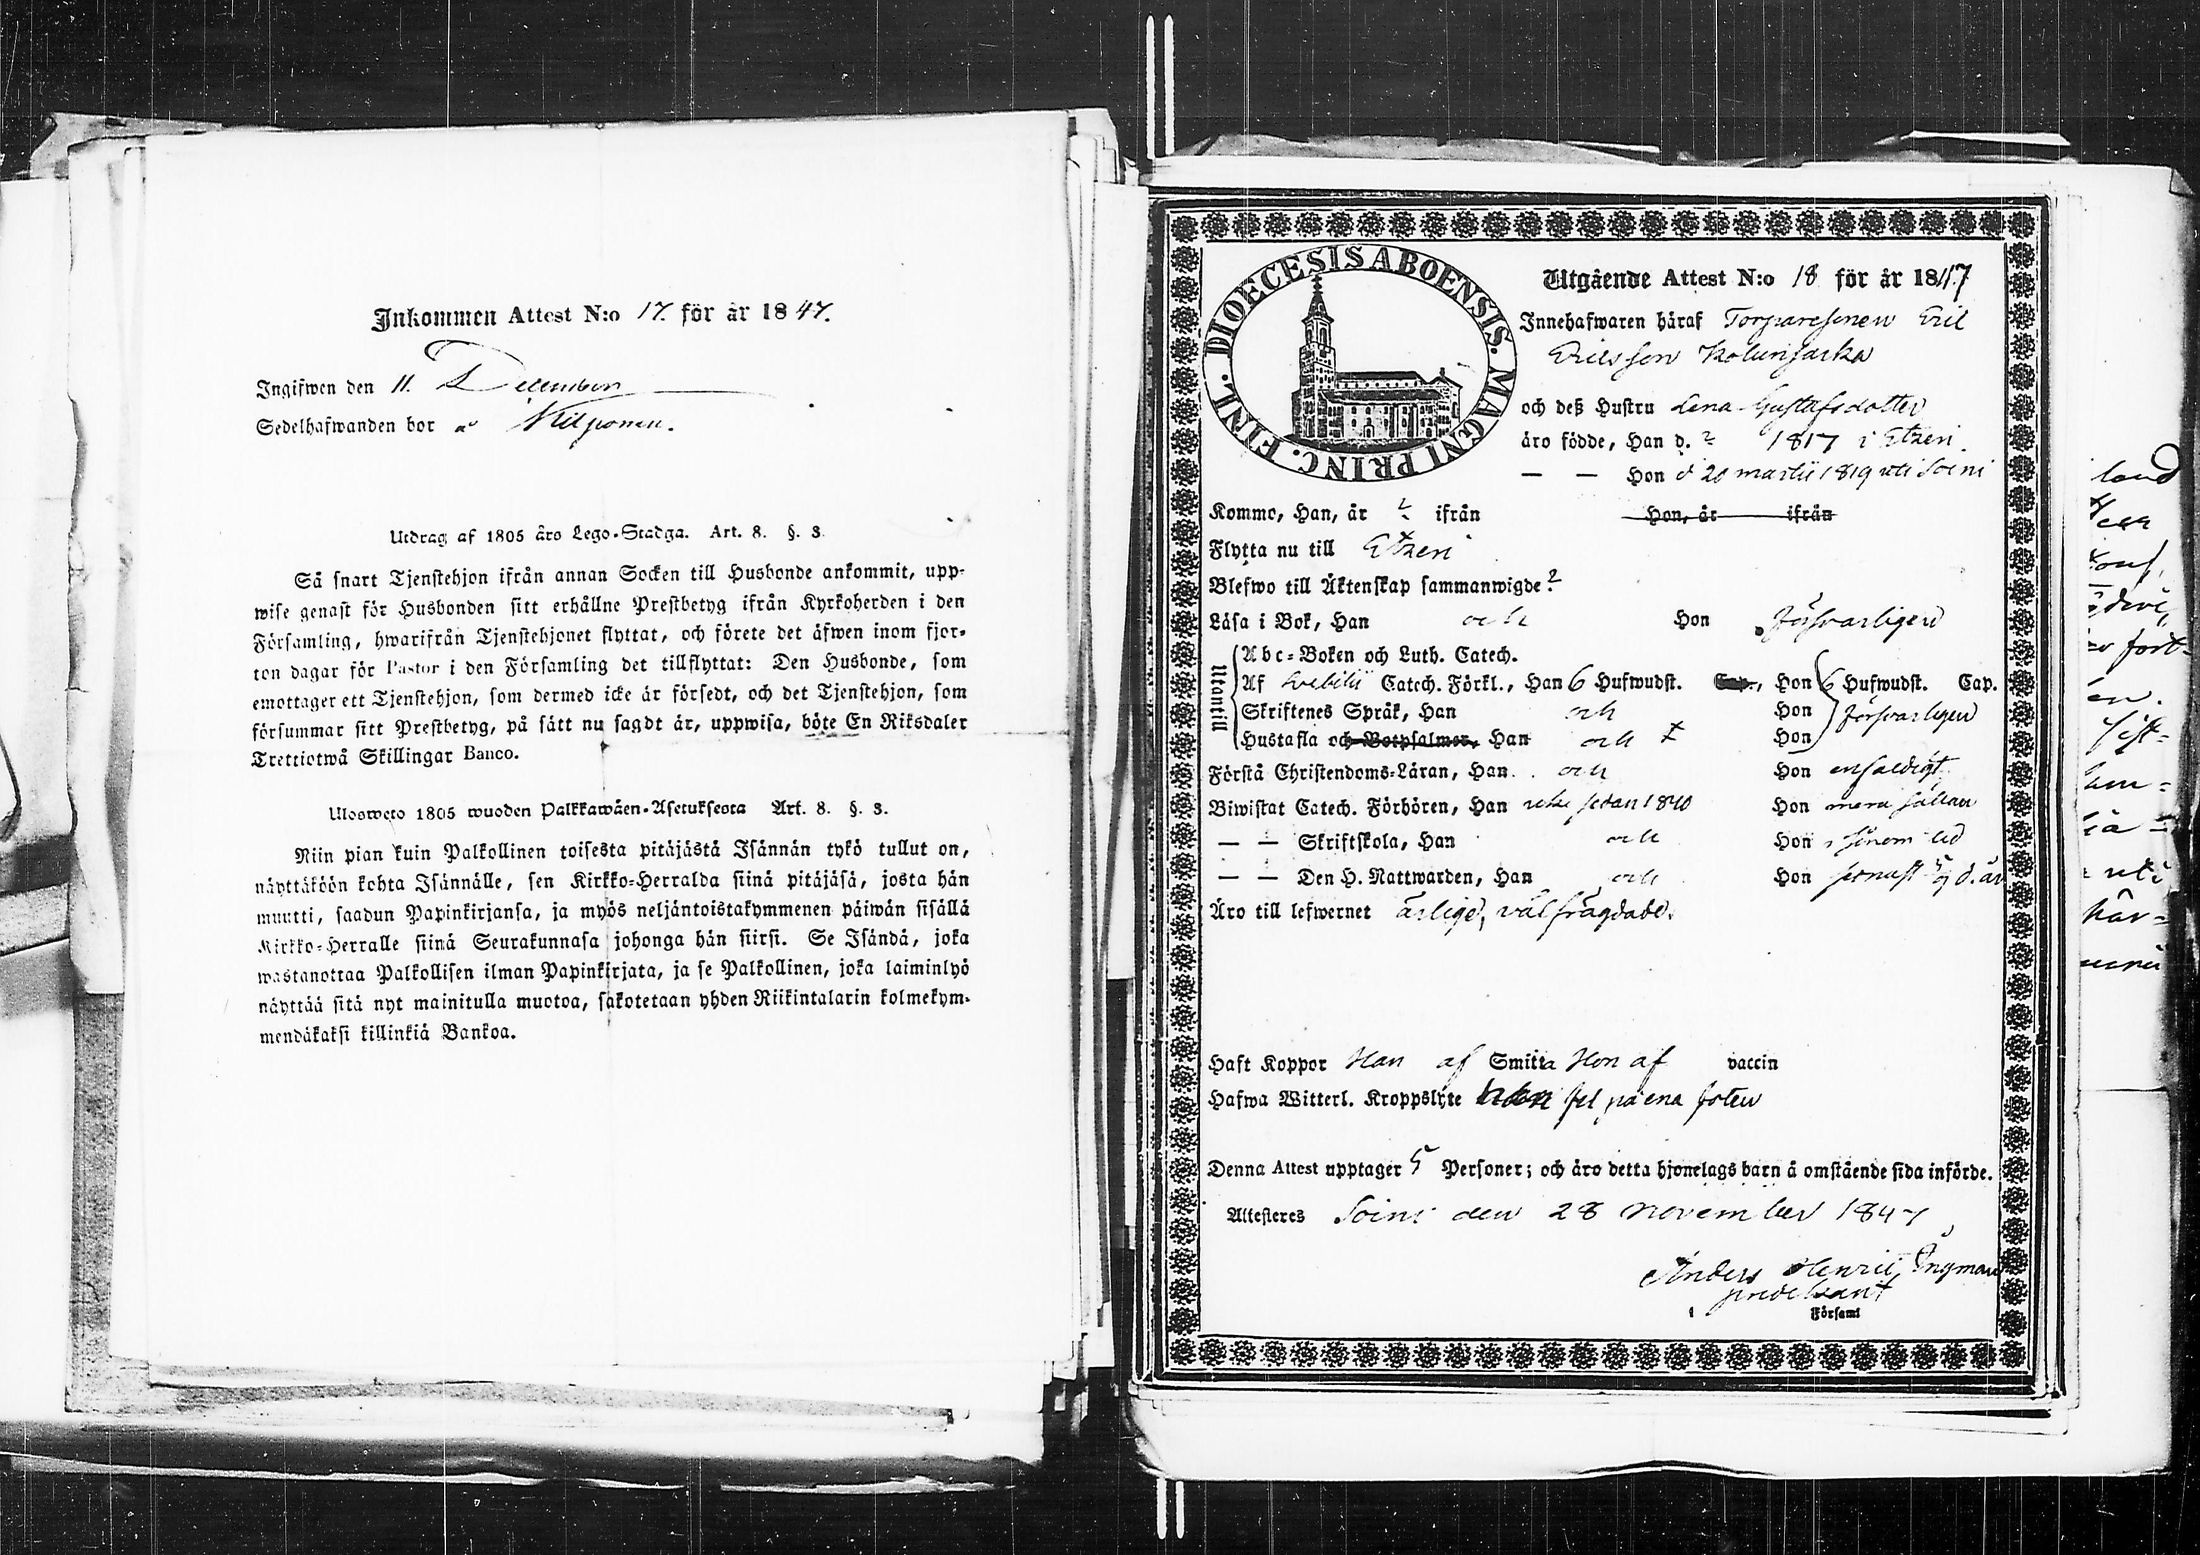 Inkommen Attest N:o 17. för år 1847.
Ingifwen den 11. December
Sedelhafwanden bor å Kilponen.
Utdrag af 1805 års Lego-Stadga. Art. 8. §. 3.
Så snart Tjenstehjon ifrån annan Socken till Husbonde ankommit, upp-
wise genast för Husbonden sitt erhållne Prestbetyg ifrån Kyrkoherden i den
Församling, hwarifrån Tjenstehjonet flyttat, och förete det äfwen inom fjor-
ton dagar för Pastor i den Församling det tillflyttat: Den Husbonde, som
emottager ett Tjenstehjon, som dermed icke är försedt, och det Tjenstehjon, som
försummar sitt Prestbetyg, på sätt nu sagdt är, uppwisa, böte En Riksdaler
Trettiotwå Skillingar Banco.
Ulosweto 1805 wuoden Palkkawäen-Asetuksesta Art. 8. §. 3.
Niin pian kuin Palkollinen toisesta pitäjästä Isännän tykö tullut on,
näyttäköön kohta Isännälle, sen Kirkko-Herralda siinä pitäjäsä, josta hän
muutti, saadun Papinkirjansa, ja myös neljäntoistakymmenen päiwän sisällä
Kirkko-Herralle siinä Seurakunnasa johonga hän siirsi. Se Isändä, joka
wastanottaa Palkollisen ilman Papinkirjata, ja se Palkollinen, joka laiminlyö
näyttää sitä nyt mainitulla muotoa, sakotetaan yhden Riikintalarin kolmekym-
mendäkaksi killinkiä Bankoa.
DIOECESIS ABOENSIS. MAGNI PRINC. FINL.
Utgående Attest N:o 18 för år 1847
Innehafwaren häraf Torparesonen Eric
Ericsson Kolunsarka
och deß Hustru Lena Gustafsdotter
äro födde, Han d. ? 1817 i Etzeri
— — Hon d 20 martii 1819 uti Soini
Kommo, Han, år ? ifrån Hon, år ifrån
Flytta nu till Etzeri
Blefwo till Äktenskap sammanwigde ?
Läsa i Bok, Han och Hon försvarligen
Utantill
Abc-Boken och Luth. Catech.
Af Svebilii Catech. Förkl., Han 6 Hufwudst. Cap., Hon 6 Hufwudst. Cap.
Skriftenes Språk, Han och Hon försvarligen
Hustafla och Botpsalmer, Han och Hon
Förstå Christendoms-Läran, Han och Hon enfaldigt
Biwistat Catech. Förhören, Han icke sedan 1840 Hon mera sällan
— — Skriftskola, Han och Hon i sinom tid
— — Den H. Nattwarden, Han och Hon senast d. år
Äro till lefwernet ärlige, väl frägdade.
Haft Koppor Han af Smitta Hon af vaccin
Hafwa Witterl. Kroppslyte fel på ena foten
Denna Attest upptager 5 Personer; och äro detta hjonelags barn å omstående sida införde.
Attesteres Soini den 28 november 1847
Anders Henric Ingman
predikant
i Församl
land
fört-
en.
uti
här-